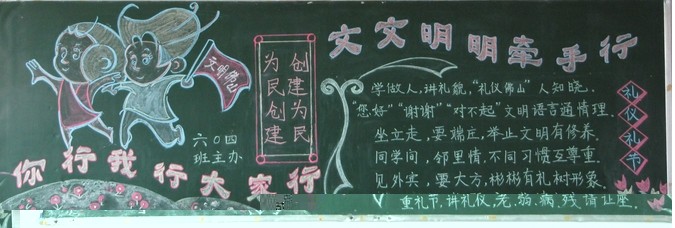 文文明明牵手行
文明佛山
创建为民
为民创建
六〇四
班主办
你行我行大家行
学做人,讲礼貌,“礼仪佛山”人知晓.
“您好”“谢谢”“对不起”文明语言通情理.
坐立走,要端庄,举止文明有修养.
同学间,邻里情.不同习惯互尊重.
见外宾,要大方,彬彬有礼树形象.
重礼节.讲礼仪,老.弱.病.残.请让座.
礼仪礼节